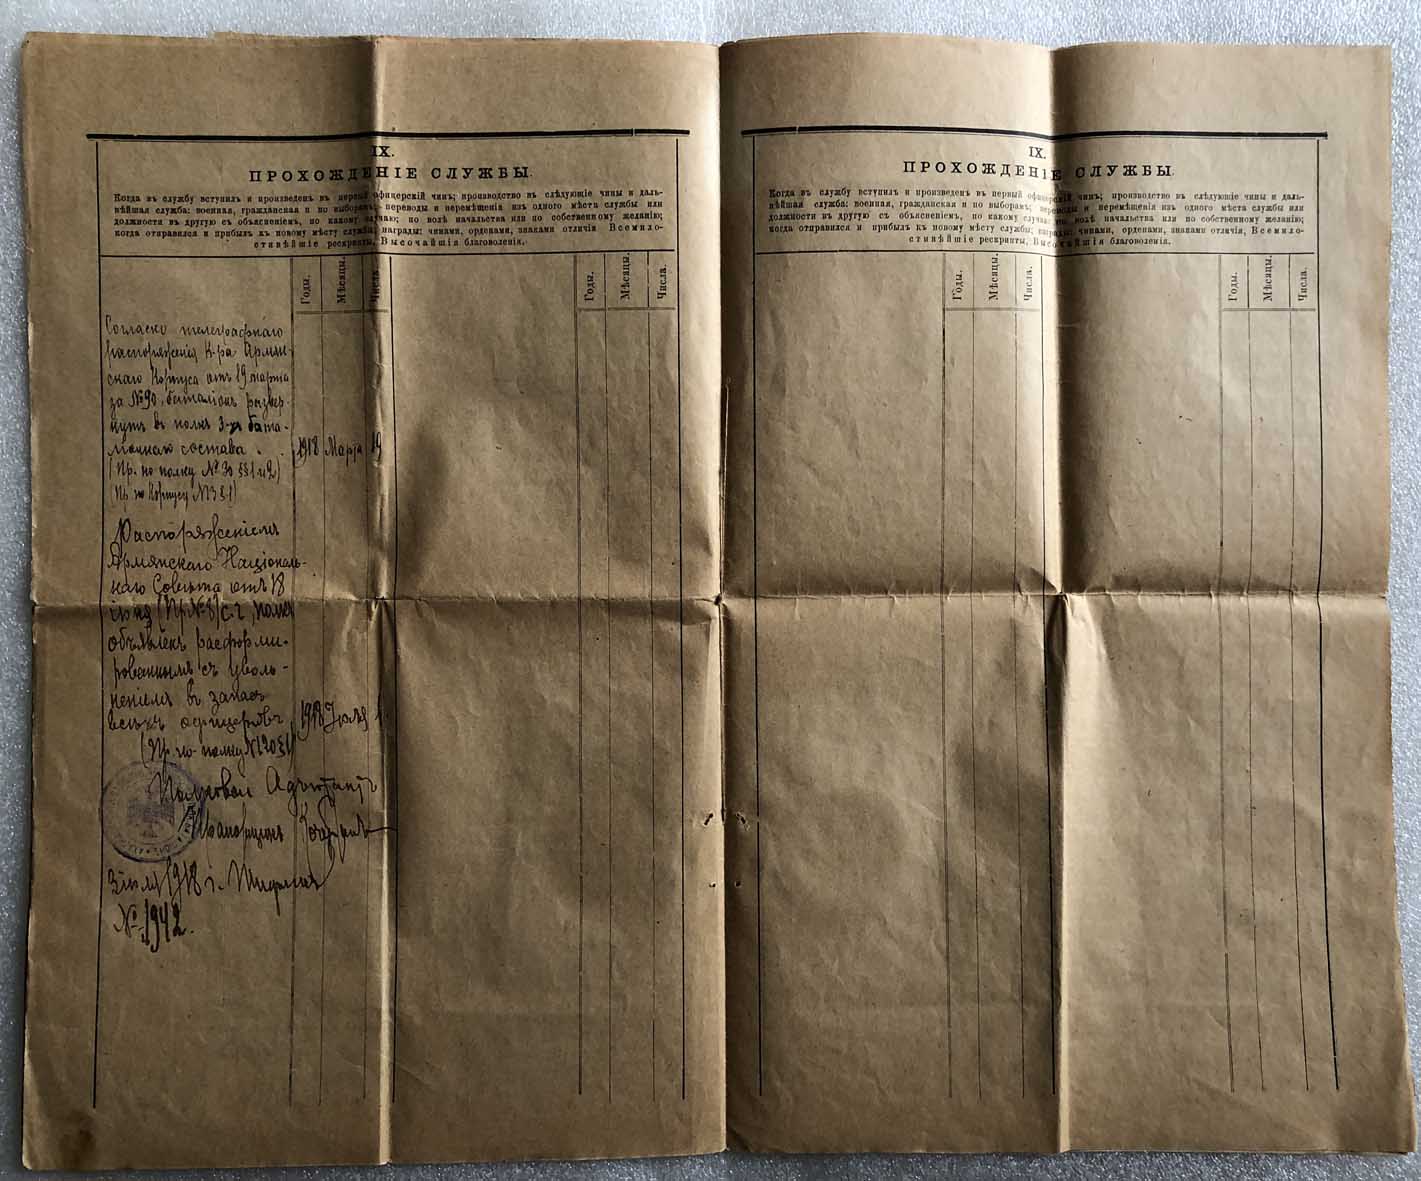 IX.
ПРОХОЖДЕНІЕ СЛУЖБЫ.
Когда въ службу вступилъ и произведенъ въ первый офицерскій чинъ; производство въ слѣдующіе чины и даль-
нѣйшая служба: военная, гражданская и по выборамъ; переводы и перемѣщенія изъ одного мѣста службы или
должности въ другую съ объясненіемъ, по какому случаю; по волѣ начальства или по собственному желанію;
когда отправился и прибылъ къ новому мѣсту службы; награды: чинами, орденами, знаками отличія, Всемило-
стивѣйшіе рескрипты, Высочайшія благоволенія.
Годы.
Мѣсяцы.
Числа.
Годы.
Мѣсяцы.
Числа.
Согласно телеграфнаго
распоряженія К-ра Армян-
скаго Корпуса отъ 19 марта
за №90 баталіонъ развер-
нутъ въ полкъ 3-хъ бата-
ліоннаго состава. 1918 Марта 19
(Пр. по полку № 30 §§1 и 2)
(Пр. по Корпусу №13 §1)
Распоряженіемъ
Армянскаго Національ-
наго Совѣта отъ 18
іюня (Пр. №8) с.г., полкъ
объявленъ расформи-
рованнымъ съ уволь-
неніемъ въ запасъ
всѣхъ офицеровъ 1918 Іюля 1.
(Пр. по полку №120 §1)
Полковой Адъютантъ
Прапорщикъ
3 іюля 1918 г. Тифлисъ
№ 1942.
IX.
ПРОХОЖДЕНІЕ СЛУЖБЫ.
Когда въ службу вступилъ и произведенъ въ первый офицерскій чинъ; производство въ слѣдующіе чины и даль-
нѣйшая служба: военная, гражданская и по выборамъ; переводы и перемѣщенія изъ одного мѣста службы или
должности въ другую съ объясненіемъ, по какому случаю; по волѣ начальства или по собственному желанію;
когда отправился и прибылъ къ новому мѣсту службы; награды: чинами, орденами, знаками отличія, Всемило-
стивѣйшіе рескрипты, Высочайшія благоволенія.
Годы.
Мѣсяцы.
Числа.
Годы.
Мѣсяцы.
Числа.